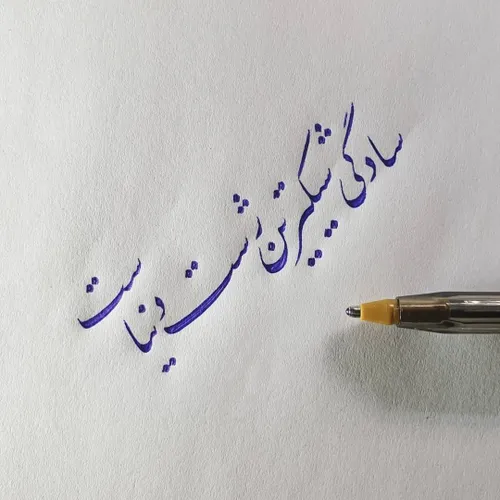 سادگی شیکترین ژست دنیاست